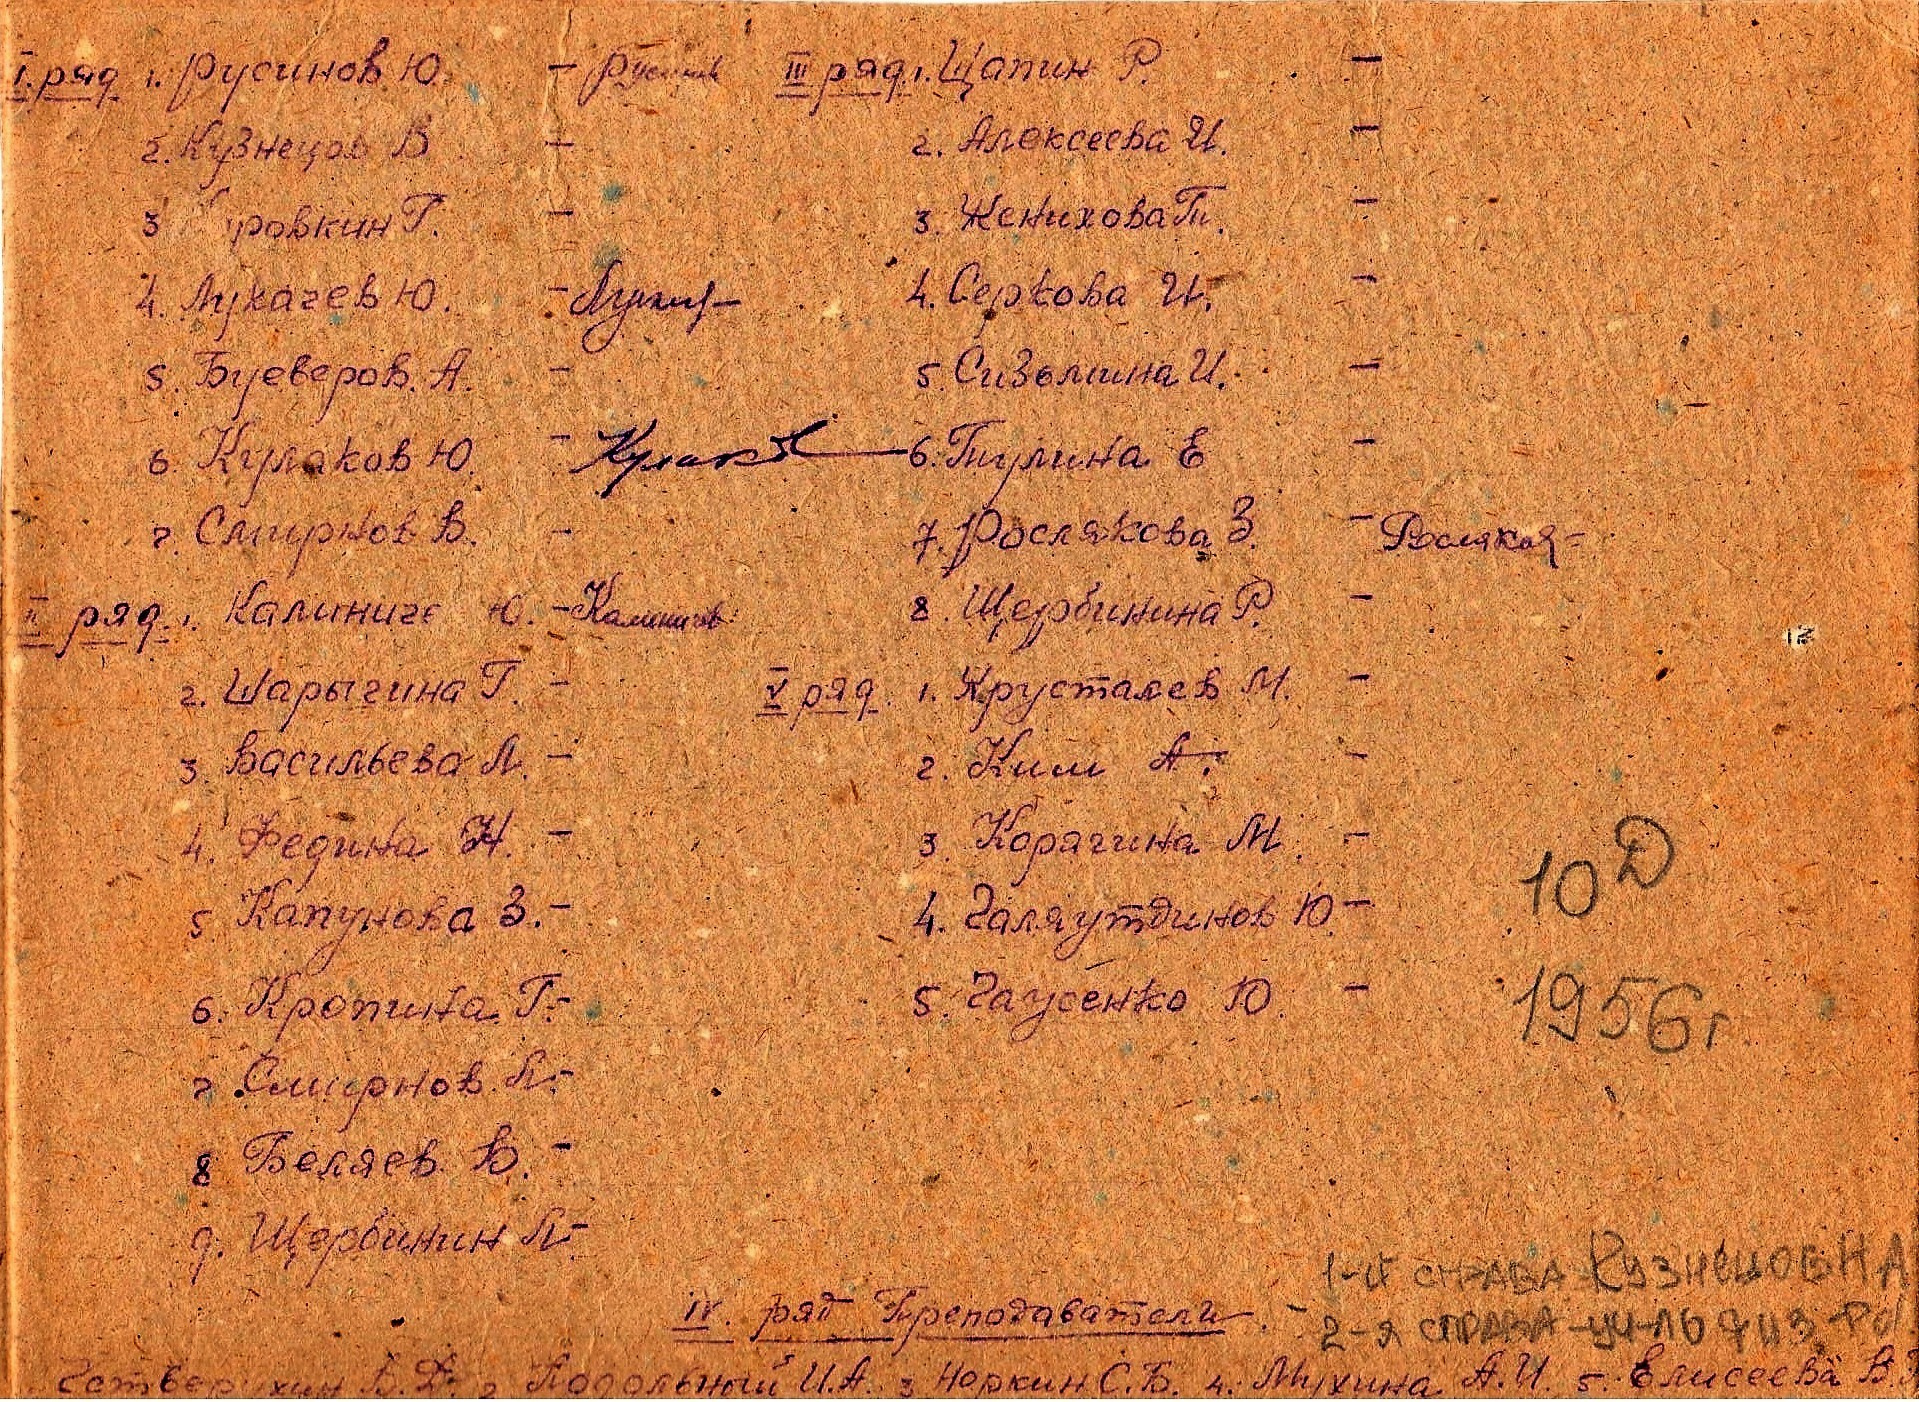 I. ряд 1. Русинов Ю. - Русинов
2. Кузнецов В -
3 ровкин Г. -
4. Лукачев Ю. -
5. Буеверов. А. -
6. Кулаков Ю. - Кулаков
7. Смирнов В. -
II ряд. 1. Калиниче Ю. - Калиничев
2. Шарыгина Г. -
3. Васильева Л. -
4. Федина Н. -
5 Капунова З. -
6. Кропина Г. -
7 Смирнов Л. -
8 Беляев В. -
9. Щербинин Л. -
III ряд 1. Щапин Р. -
2. Алексеева И. -
3. Женихова Т. -
4. Серкова И. -
5. Сизьмина И. -
6. Тулина Е -
7. Рослякова З. -
8. Щербинина Р. -
V ряд. 1. Хрусталев М. -
2. Ким А. -
3. Корягина М. -
4. Галяутдинов Ю -
5. Гаусенко Ю. -
10 Д
1956 г
IV. ряд Преподаватели.
Четверухин В.Д. 2 Подольный И.А. 3 Норкин С.Б. 4. Мухина А.И. 5. Елисеева В.
1-й справа Кузнецов НА
2-я справа - уч-ль физ-ры